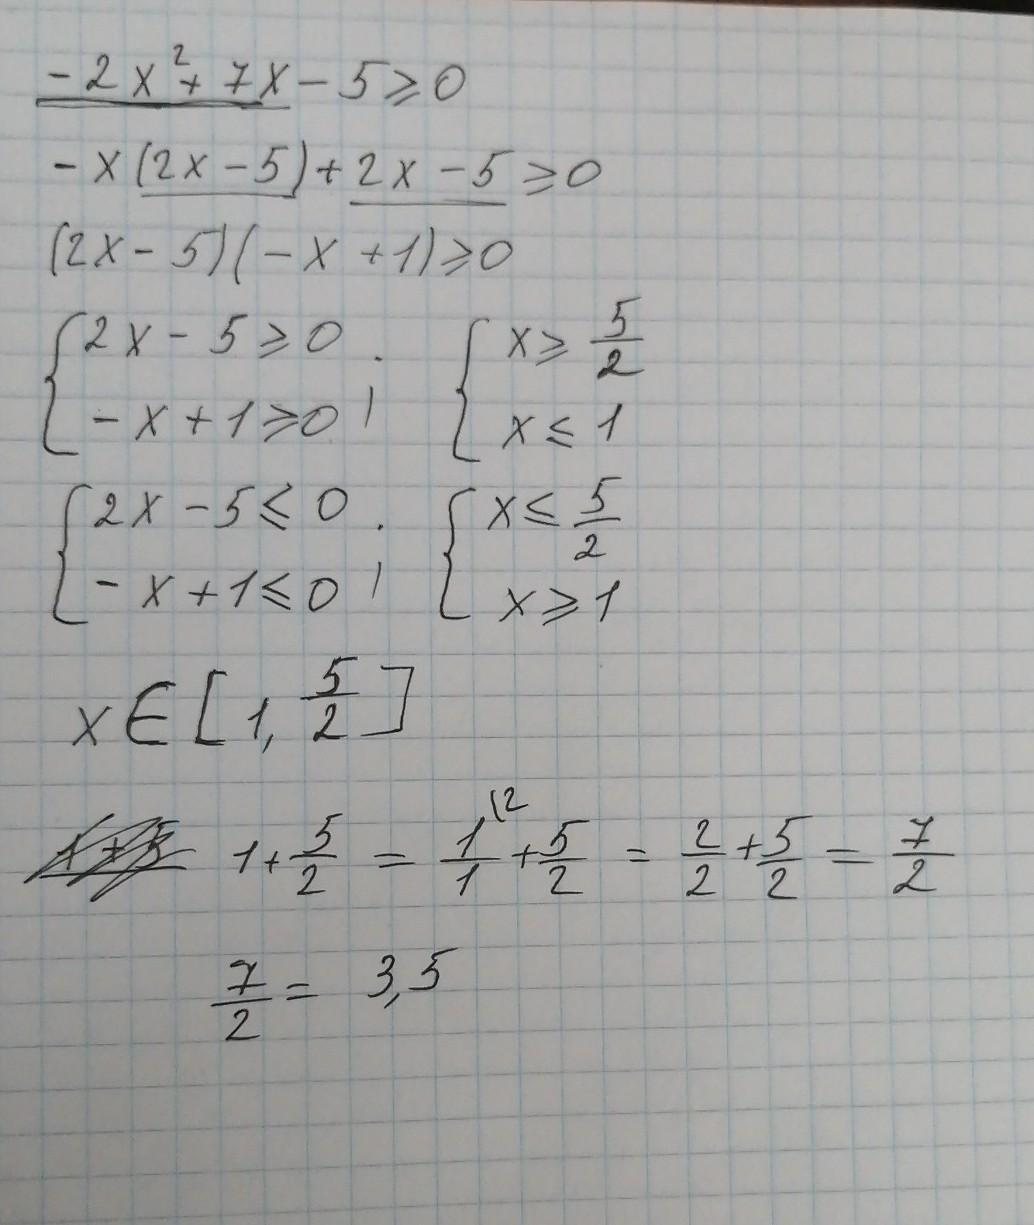 -2x²+7x-5≥0
-x(2x-5)+2x-5≥0
(2x-5)(-x+1)≥0
{2x-5≥0 ; {x≥5/2
-x+1≥0 x≤1
{2x-5≤0 ; {x≤5/2
-x+1≤0 x≥1
x∈[1, 5/2]
1+5/2 = 1/1\2+5/2 = 2/2+5/2 = 7/2
7/2 = 3,5